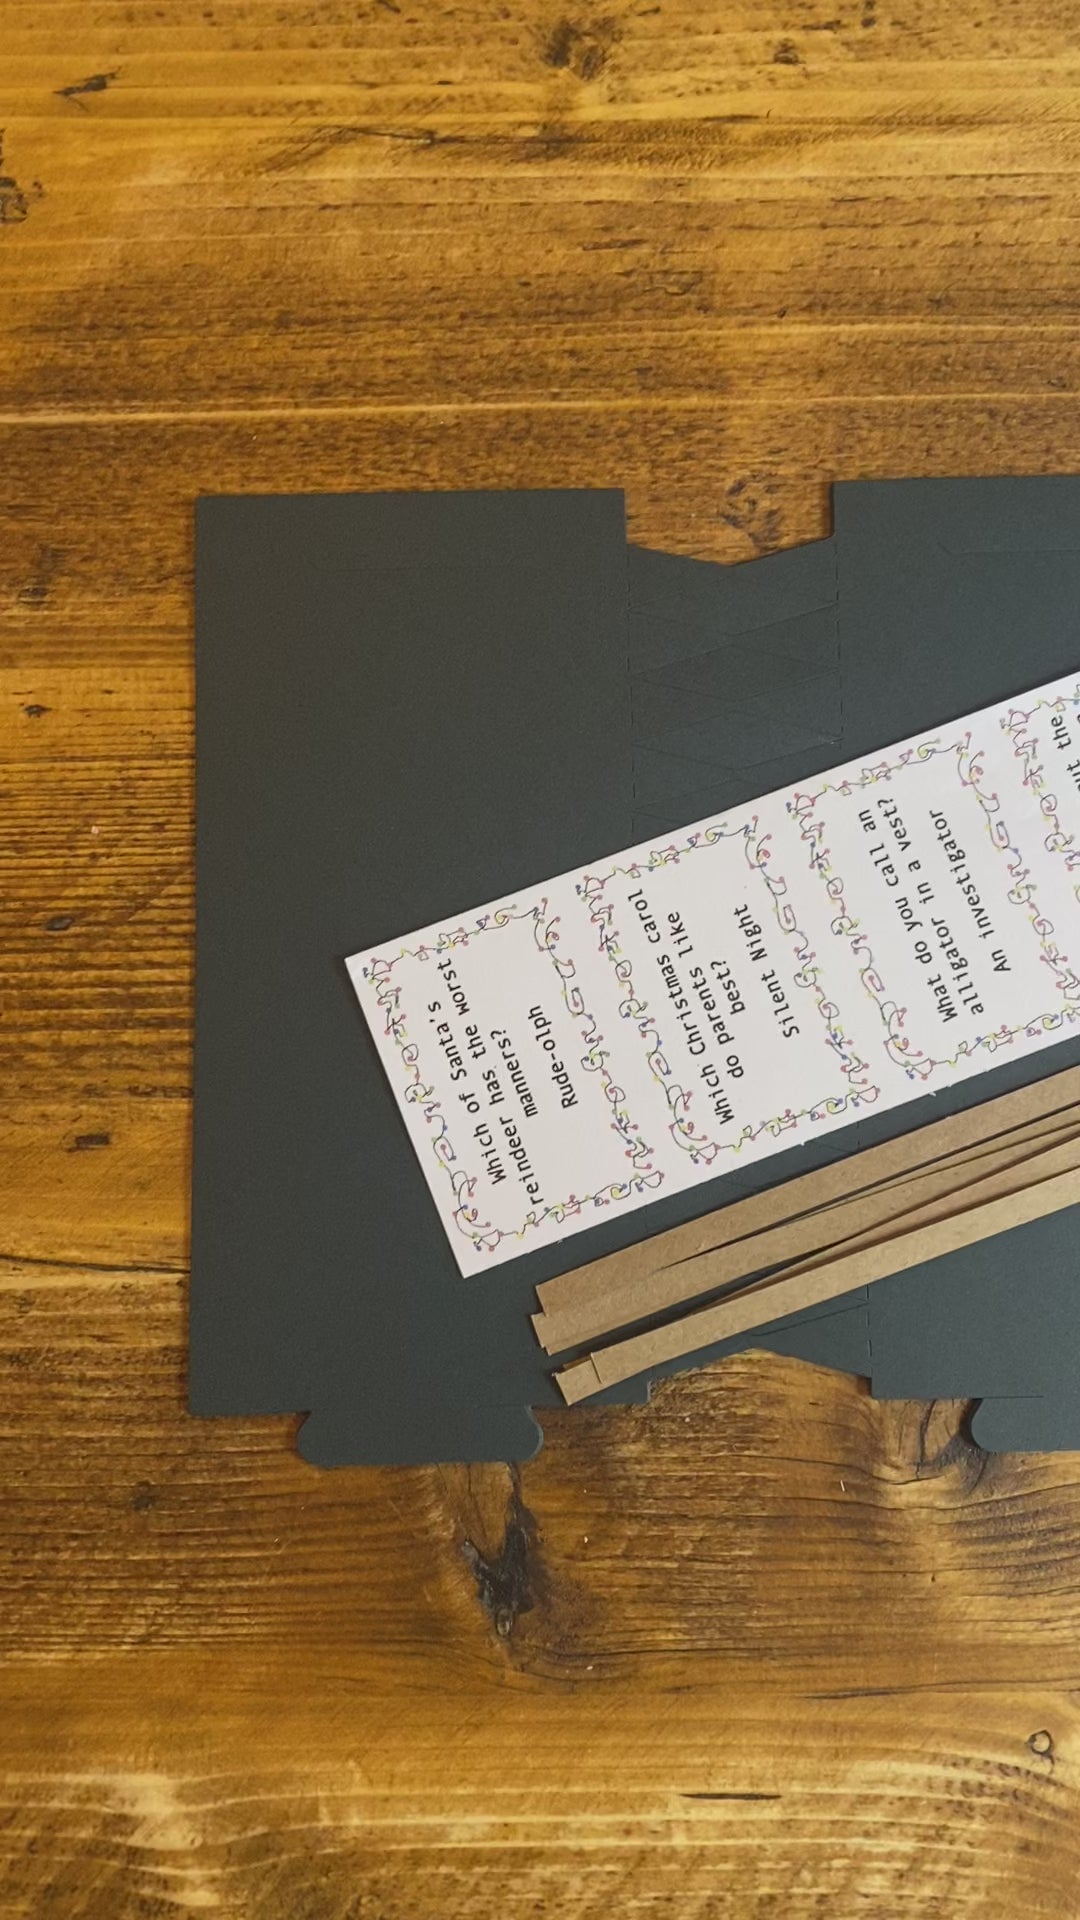 Which of Santa's
reindeer has the worst
manners?
Rude-olph
Which Christmas carol
do parents like
best?
Silent Night
What do you call an
alligator in a vest?
An investigator
the